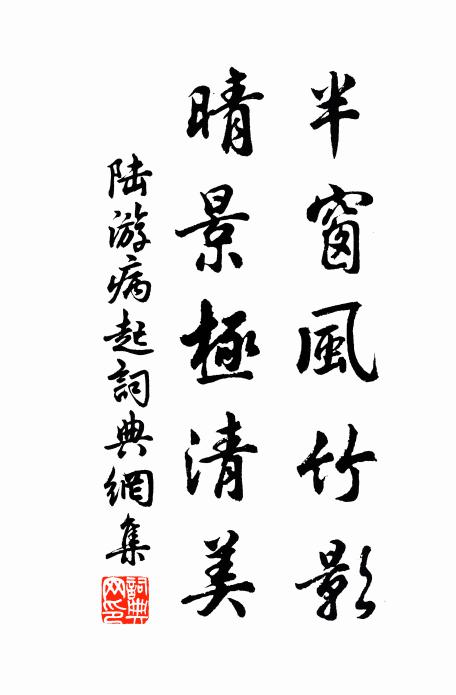 半窗風竹影
晴景極清美
陸游病起詞典網集
詞典網印